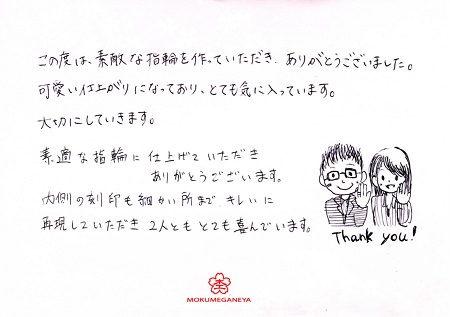 この度は、素敵な指輪を作っていただき、ありがとうございました。
可愛い仕上がりになっており、とても気に入っています。
大切にしていきます。
素適な指輪に仕上げていただき
ありがとうございます。
内側の刻印も細かい所まで、キレイに
再現していただき 2人とも とても喜んでいます。
Thank you!
MOKUMEGANEYA